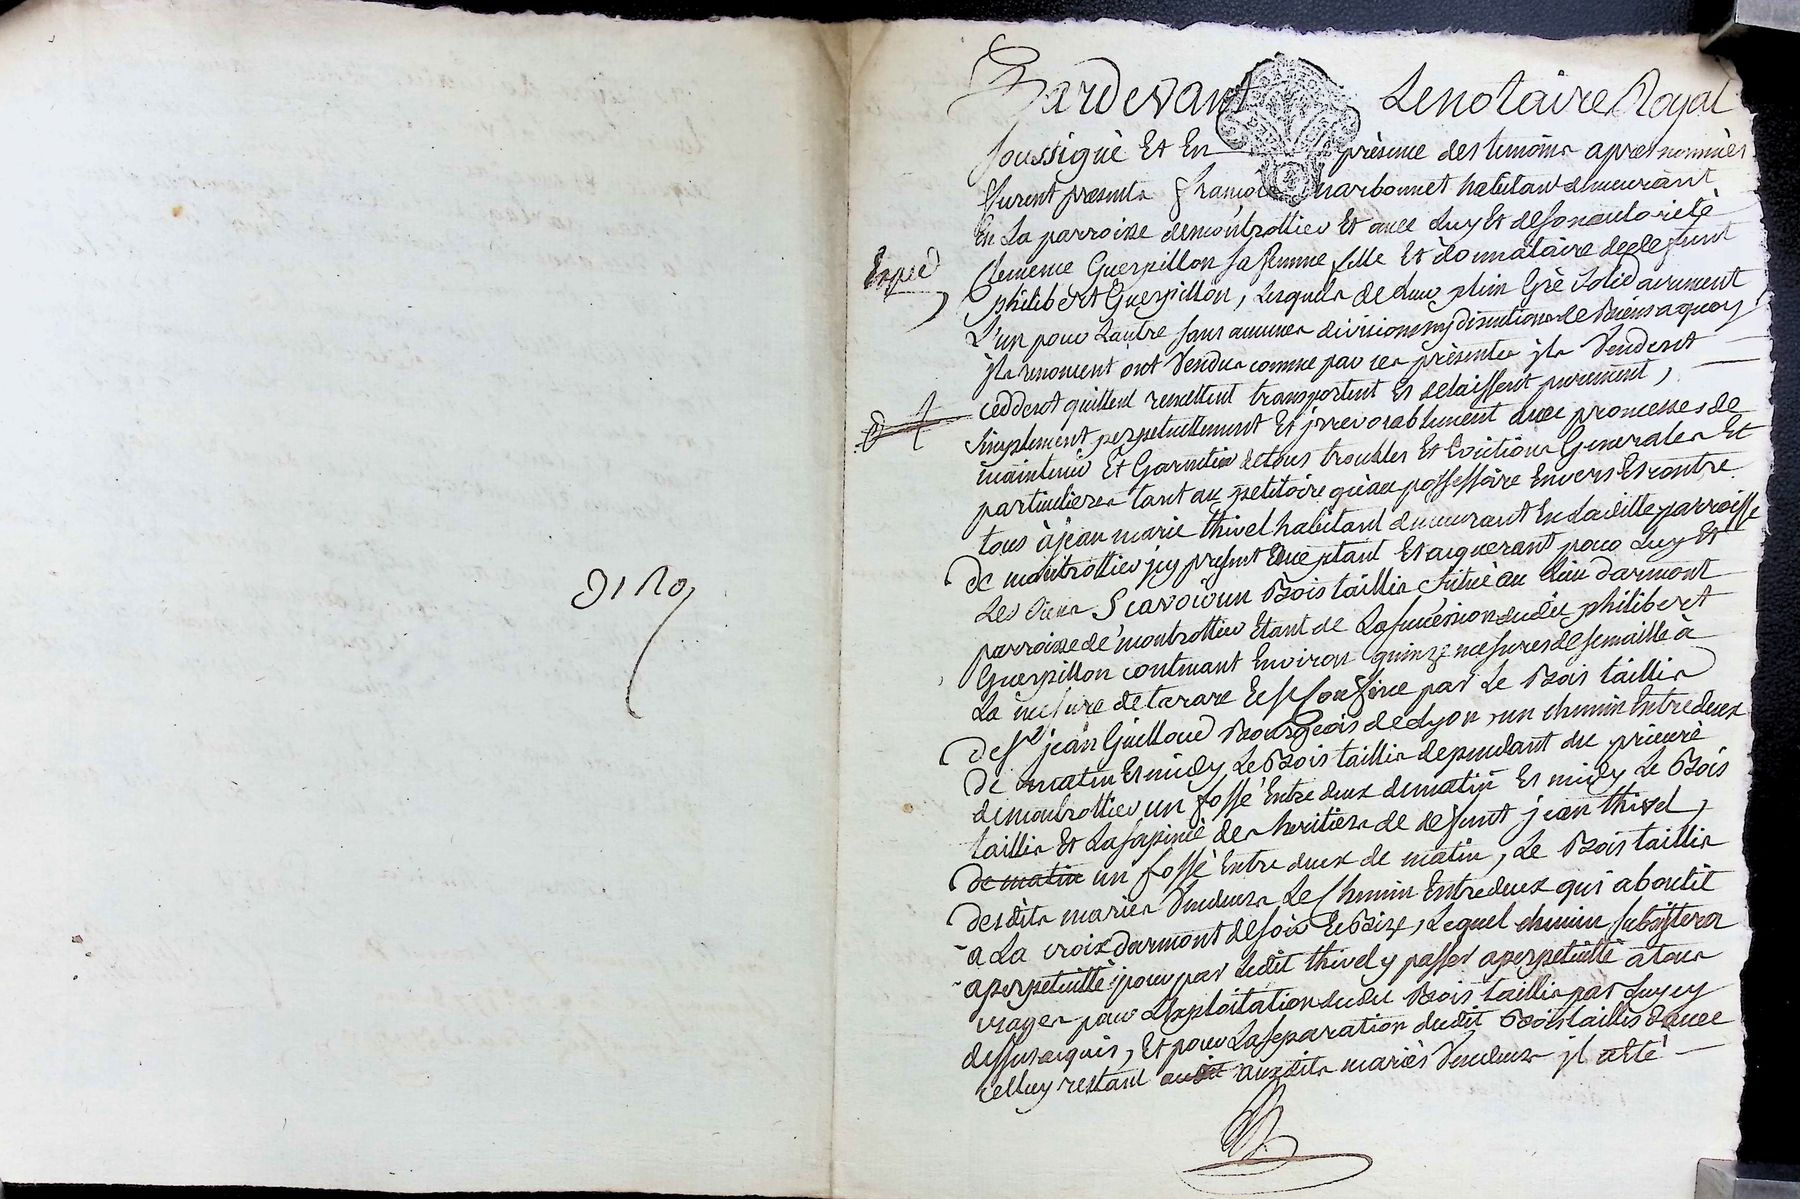 Pardevant Le notaire Royal
soussigné Et En présence des temoins apres nommés
furent presents françois charbonnet habitant demeurant
En La parroisse de montrottier Et avec Luy Et de son autorité
Clemence Guerpillon sa femme fille Et donnataire de defunt
philibert Guerpillon, Lesquels de Leur plein Gré Solidairement
L'un pour Lautre sans aucunes divisions ny discutions de Biens a quoy
jls renoncent ont Vendu comme par ces présentes jls Vendent
ceddent quittent remettent transportent Et delaissent purement,
simplement perpetuellement Et jrrevocablement avec promesses de
maintenir Et Garantir de tous troubles Et Evictions Generales Et
particulieres tant au petitoire qu'au possessoire Envers Et contre
tous à jean marie thivel habitant demeurant En Ladite parroisse
de montrottier jcy present acceptant Et acquerant pour Luy Et
Les siens Scavoir un Bois taillis situé au Lieu darmont
parroisse de montrottier Etant de La succession dudit philibert
Guerpillon contenant Environ quinze mesures de semaille à
La mesure de tarare Et se confine par Le Bois taillis
de sr jean Guilloud Bourgeois de Lyon, un chemin Entre deux
de matin Et midy Le Bois taillis dependant du prieuré
de montrottier un fossé Entre deux de matin Et midy Le Bois
taillis Et La sapinée des heritiers de defunt jean thivel,
de matin un fossé Entre deux de matin, Le Bois taillis
desdits mariés Vendeurs Le Chemin Entre deux qui aboutit
a La croix darmont de soir Et Bize, Lequel chemin subsistera
a perpetuitté pour par Ledit thivel y passer a perpetuitté a tous
usages pour L'exploitation dudit Bois taillis par Luy cy
dessus acquis, Et pour La separation dudit Bois taillis d'avec
celluy restant audit auxdits mariés Vendeurs jl a Eté
Expéé